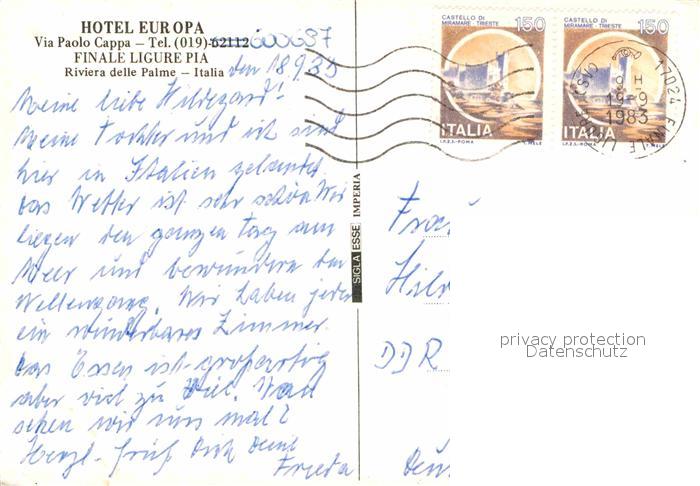 HOTEL EUROPA
Via Paolo Cappa – Tel. (019) 62112 600687
FINALE LIGURE PIA
Riviera delle Palme – Italia
den 18.9.83
Meine liebe Hildegard!
Meine Tochter und ich sind
hier in Italien gelandet.
Das Wetter ist sehr schön. Wir
liegen den ganzen Tag am
Meer und bewundern den
Wellengang. Wir haben jeder
ein wunderbares Zimmer.
Das Essen ist großartig
aber viel zu viel. Wann
sehen wir uns mal?
Herzl. grüß Dich Deine
Frieda
SIGLA ESSE IMPERIA
CASTELLO DI
MIRAMARE - TRIESTE
150
ITALIA
I.P.Z.S. - ROMA
T. MELE
CASTELLO DI
MIRAMARE - TRIESTE
150
ITALIA
I.P.Z.S. - ROMA
T. MELE
17024 FINALE
19-9
1983
Frau
DDR
privacy protection
Datenschutz